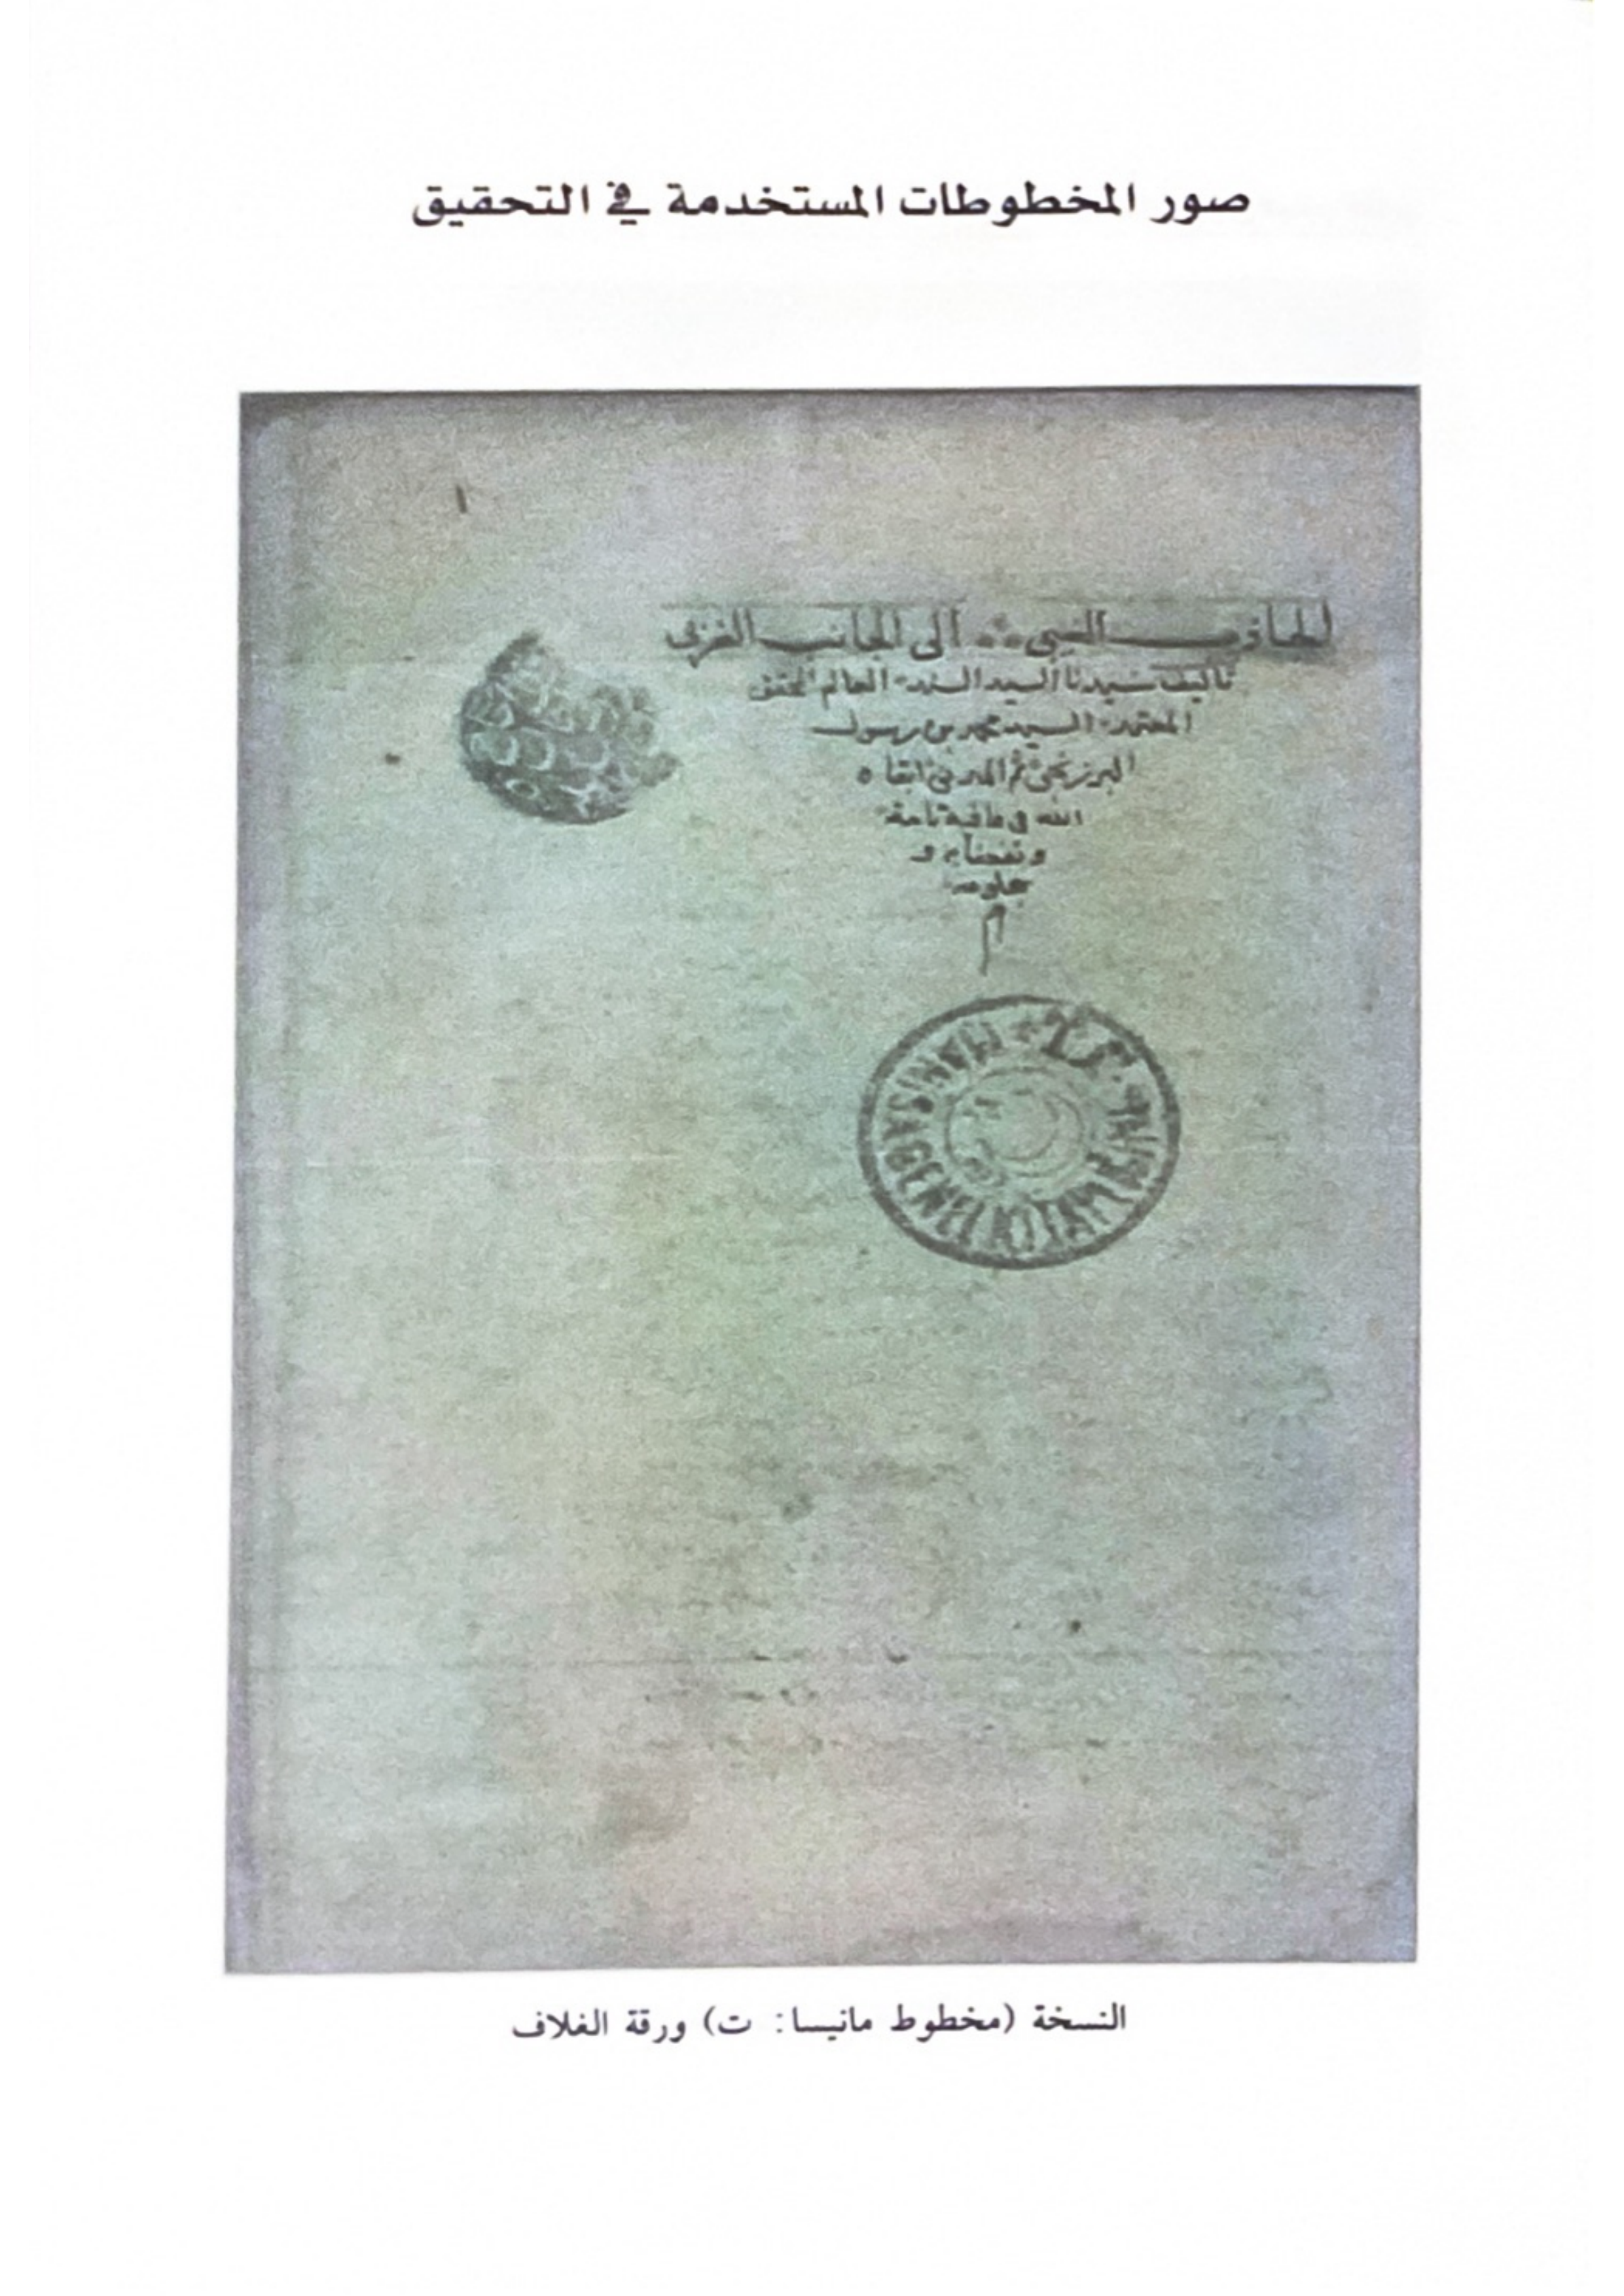 صور المخطوطات المستخدمة في التحقيق
الجاذب الغيبي إلى الجانب الغربي
تأليف سيدنا السيد السند العالم المحقق
المعتمد السيد محمد بن رسول
البرزنجي ثم المدني ابقاه
الله في عافية تامة
و نفعنا به و
بعلومه
م
MANISA GENEL KİTAPLIĞI
النسخة (مخطوط مانيسا: ت) ورقة الغلاف